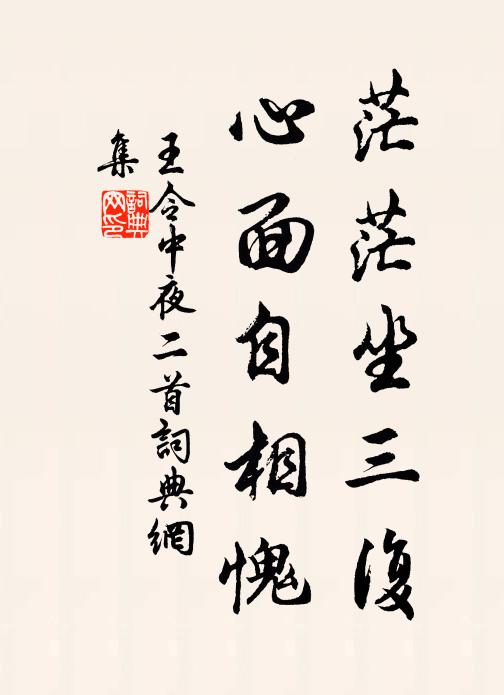 茫茫坐三復
心面自相愧
王令中夜二首詞典網
集
詞典网印